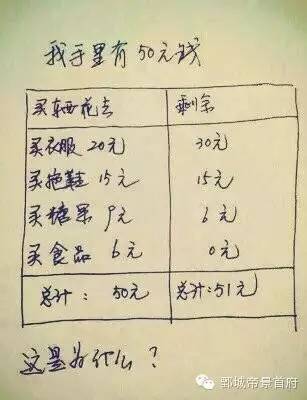 我手里有50元钱
买东西花去 剩余
买衣服 20元 30元
买拖鞋 15元 15元
买糖果 9元 6元
买食品 6元 0元
总计： 50元 总计:51元
这是为什么？
鄆城帝景首府